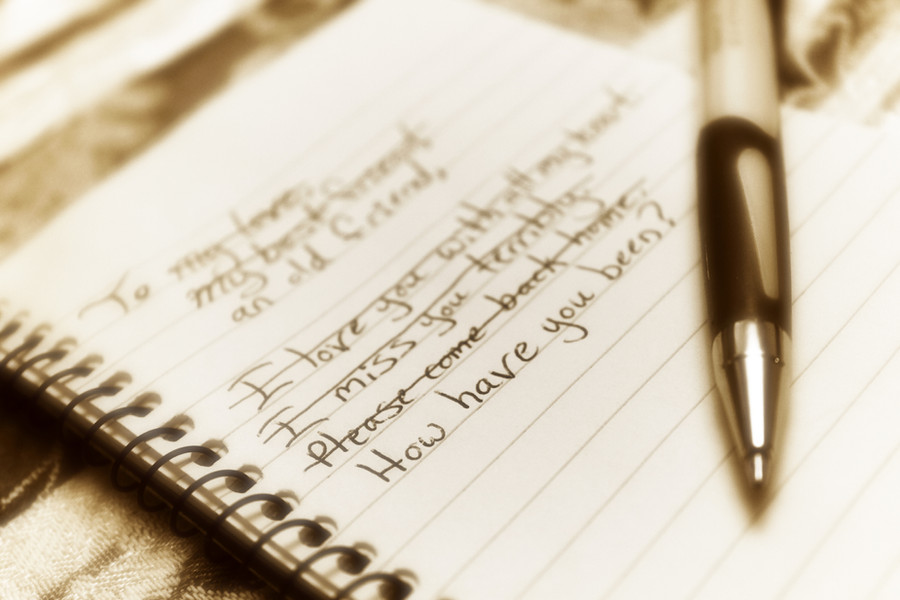 To my love,
my best friend
an old friend,
I love you with all my heart
I miss you terribly.
Please come back home.
How have you been?